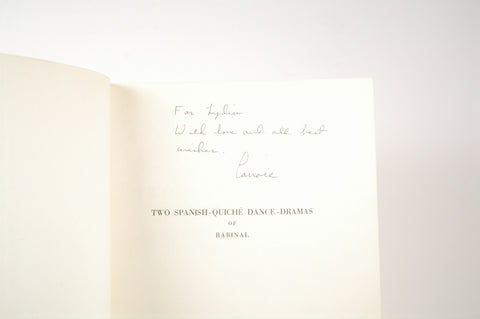 For Lydia
With love and all best
wishes.
TWO SPANISH-QUICHÉ DANCE-DRAMAS
OF
RABINAL